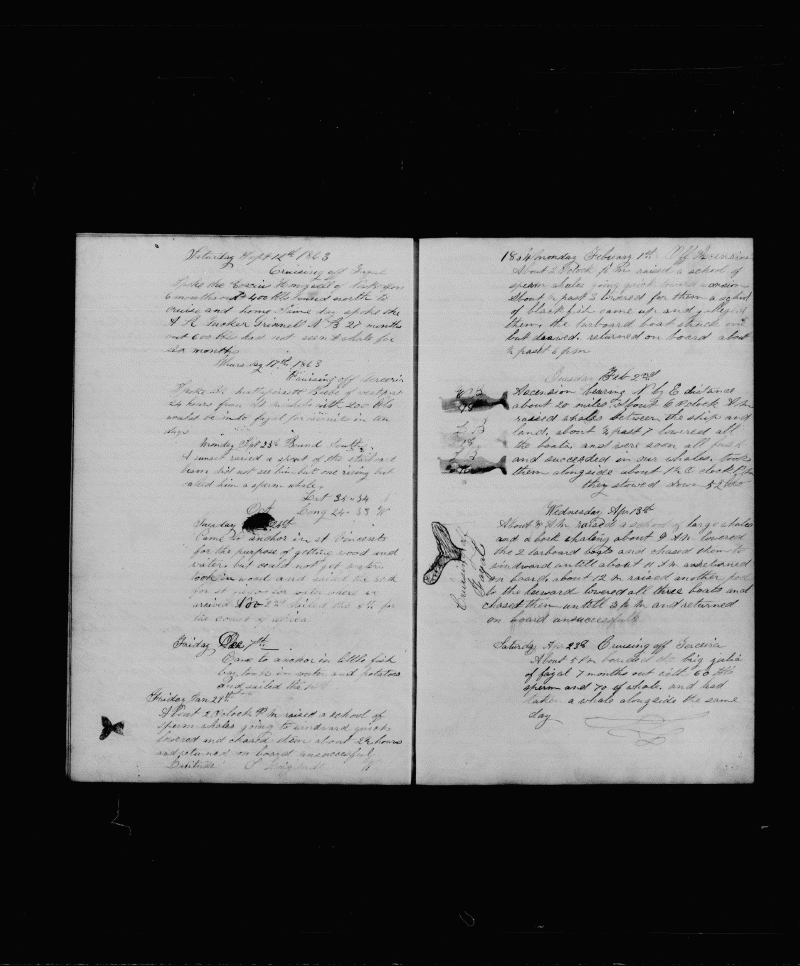 Saturday Sept 12th 1863
Cruising off Fayal
Spoke the
6 months out 400 bbls bound north to
cruise and home Same day spoke the
A R Tucker Grinnell N B 27 months
out 600 bbls had not seen whale for
six months
Thursday 17th 1863
Cruising off
Spoke Bk Babe of westport
24 hours from with 200 bbls
would be into fayal for in ten
days
Monday 23d Bound South
A sunset raised a spout of the starboard
beam did not see him but one rising but
called him a sperm whale
Lat 35-34
Oct Long 24-33 W
Tuesday
Came to anchor in st Vincents
for the purpose of getting wood and
water but could not get water
took in wood and sailed the
for st water where we
arrived Nov 2nd sailed the 4th for
the coast of africa
Friday Dec 7th
Came to anchor in little fish
bay took in water and potatoes
and sailed the
Friday Jan 29th
About 2 Oclock P M raised a school of
sperm whales going to windward quick
lowered and chased them about 2½ hours
and returned on board unsuccessful
Latitude S Longitude W
1864 monday February 1st Off Ascension
About 2 Oclock P M raised a school of
sperm whales going quick toward ascension
about ½ past 3 lowered for them a school
of black fish came up and gallied
them, the larboard boat struck one
but drawed. returned on board about
½ past 6 pm
Tuesday Feb 2nd
Ascension bearing N by E distance
about 20 miles about 6 Oclock A M
raised whales between the ship and
land, about ½ past 7 lowered all
the boats, and were soon all fast
and succeeded in our whales. took
them alongside about 12 O clock
they stowed down 52 bbls
Wednesday Apr 13th
About 8 A M raised a school of large whales
and a bark whaling about 9 A M lowered
the 2 larboard boats and chased them to
windward untill about 11 A M and returned
on board, about 12 M raised another pod
to the leeward lowered all three boats and
chased them untill 3 P M and returned
on board unsuccessfull
Cruising off
Fayal
Saturday Apr 23d Cruising off
About 5 P M boarded the brig julia
of fayal 7 months out with 60 bbls
sperm and 70 of whale, and had
taken a whale alongside the same
day